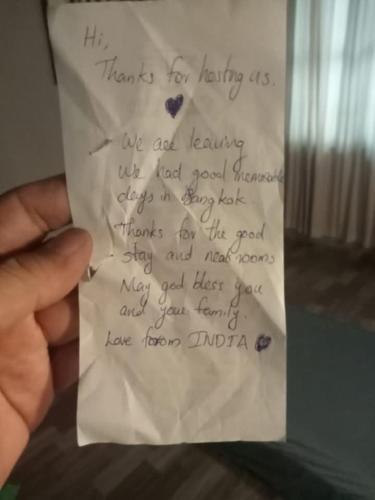 Hi,
Thanks for hosting us.
We are leaving
We had good memorable
days in Bangkok.
Thanks for the good
stay and neat rooms
May god bless you
and your family.
Love from INDIA